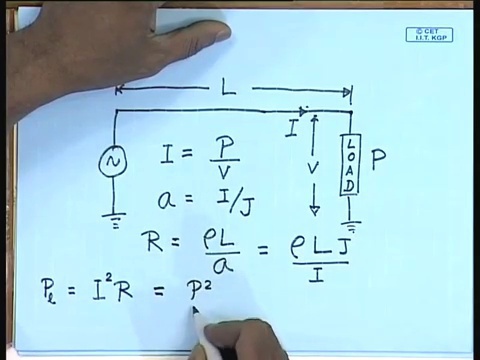 © CET
I.I.T. KGP
L
I
V
LOAD
P
~
I = P/V
a = I/J
R = ρL/a = ρLJ/I
Pₗ = I²R = P²